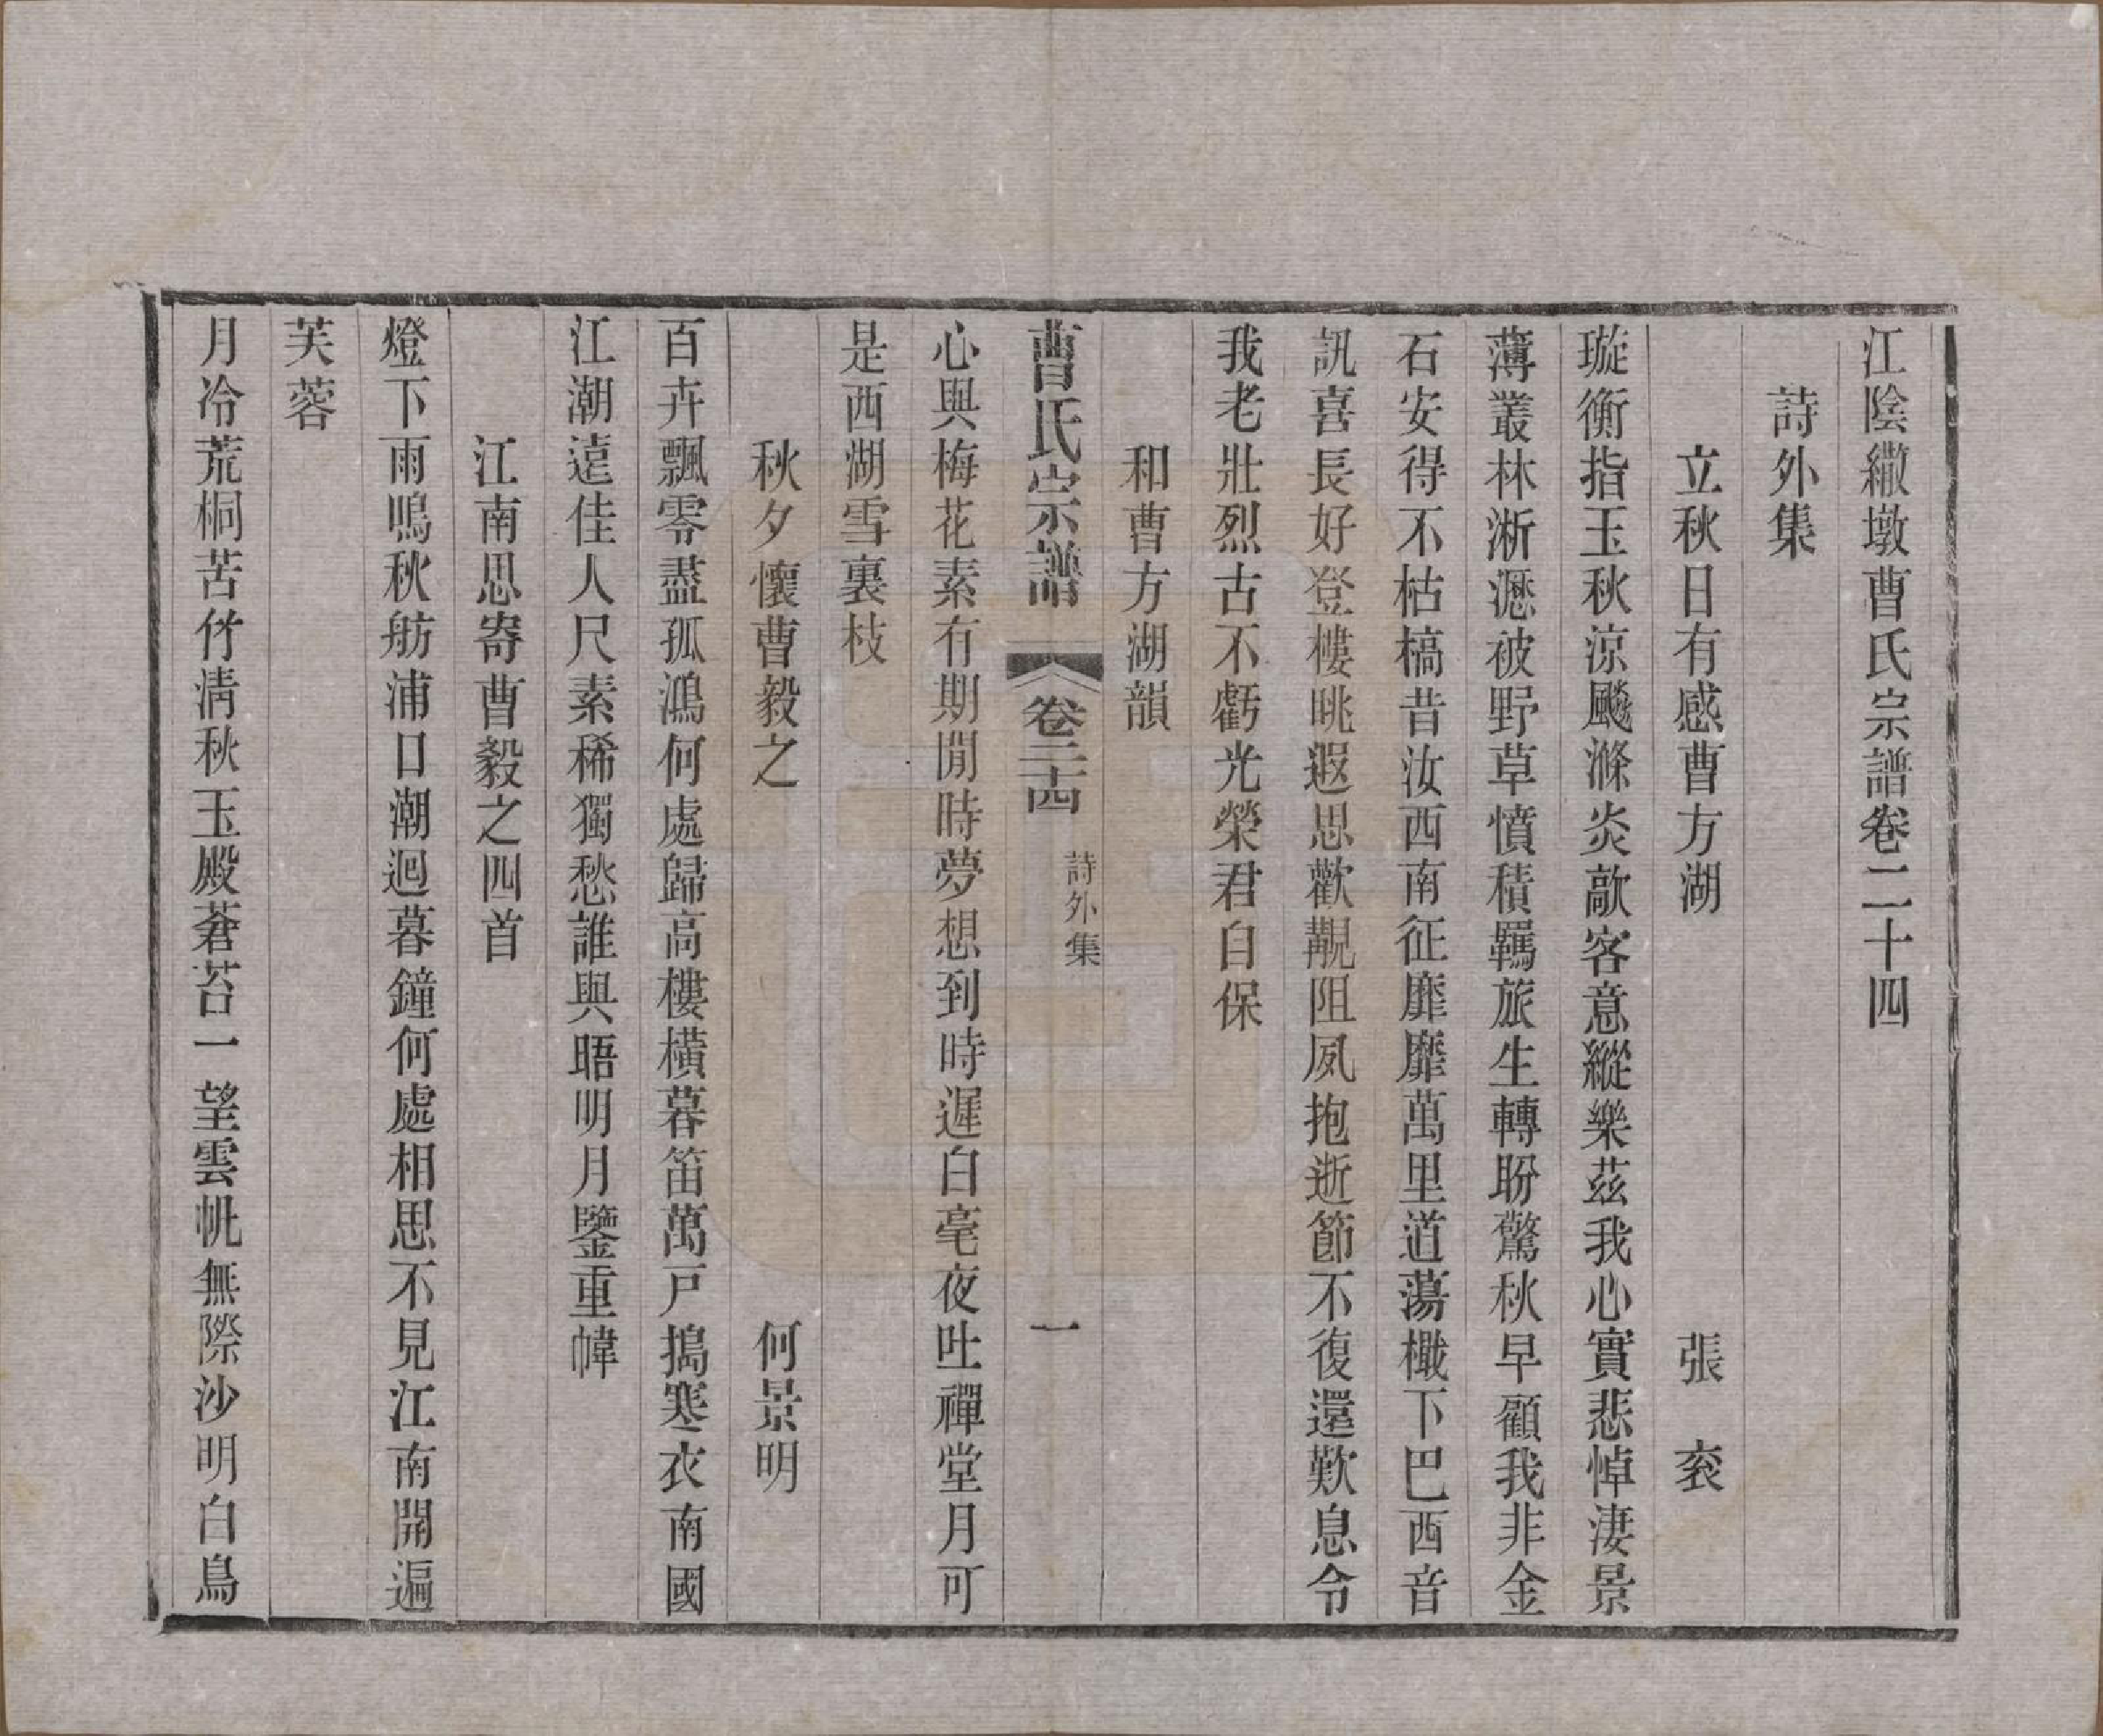 江陰繖墩曹氏宗譜卷二十四
詩外集
立秋日有感曹方湖　張　袞
璇衡指玉秋涼飈滌炎歊客意縱樂茲我心實悲悼淒景
薄叢林淅瀝被野草憤積羈旅生轉盼驚秋早顧我非金
石安得不枯槁昔汝西南征靡靡萬里道蕩檝下巴西音
訊喜長好登樓眺遐思歡覯阻夙抱逝節不復還歎息令
我老壯烈古不虧光榮君自保
和曹方湖韻
曹氏宗譜　卷二十四　詩外集　一
心與梅花素有期閒時夢想到時遲白毫夜吐禪堂月可
是西湖雪裏枝
秋夕懷曹毅之　何景明
百卉飄零盡孤鴻何處歸高樓橫暮笛萬戸搗寒衣南國
江潮遠佳人尺素稀獨愁誰與晤明月鑒重幃
江南思寄曹毅之四首
燈下雨鳴秋舫浦口潮迴暮鐘何處相思不見江南開遍
芙蓉
月冷荒桐苦竹淸秋玉殿蒼苔一望雲帆無際沙明白鳥